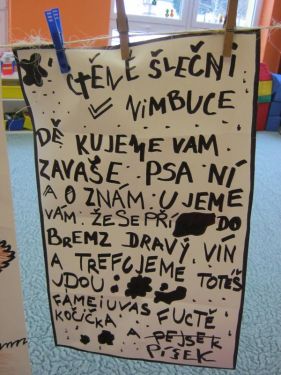 CTĚNÉ ŠLEČNÍ
NIMBUCE
DĚ KUJEME VAM
ZAVAŠE PSA NÍ
A O ZNÁM UJEME
VÁM: ŽE SE PŘÍ DO
BREMZ DRAVÝ VÍN
A TREFUJEME TOTĚŠ
JDOU
FÁMEIUVAS FUCTĚ
KOČIČKA A PEJSEK
PÍSEK